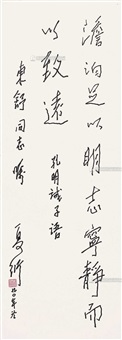 澹泊足以明志寧靜而
以致遠
孔明誡子語
東舒同志 囑
夏衍